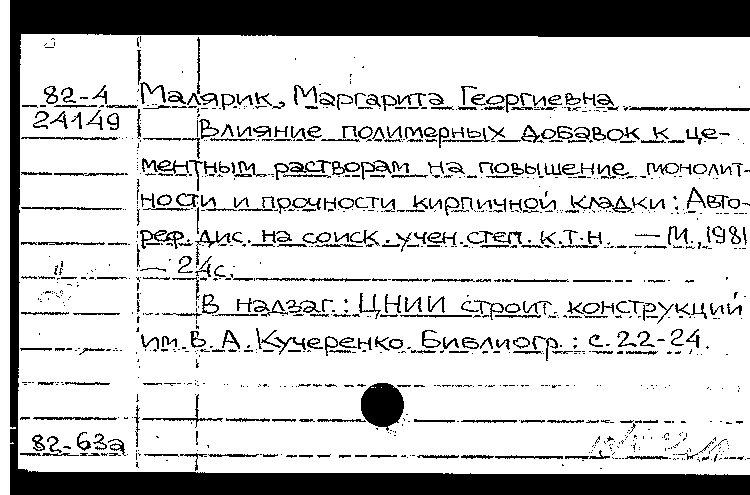 82-4 Малярик, Маргарита Георгиевна
24149 Влияние полимерных добавок к це-
ментным растворам на повышение монолит-
ности и прочности кирпичной кладки: Авто-
реф. дис. на соиск. учен. степ. к.т.н. — М., 1981
— 24с.
В надзаг.: ЦНИИ строит. конструкций
им. В. А. Кучеренко. Библиогр.: с. 22-24.
82-63а